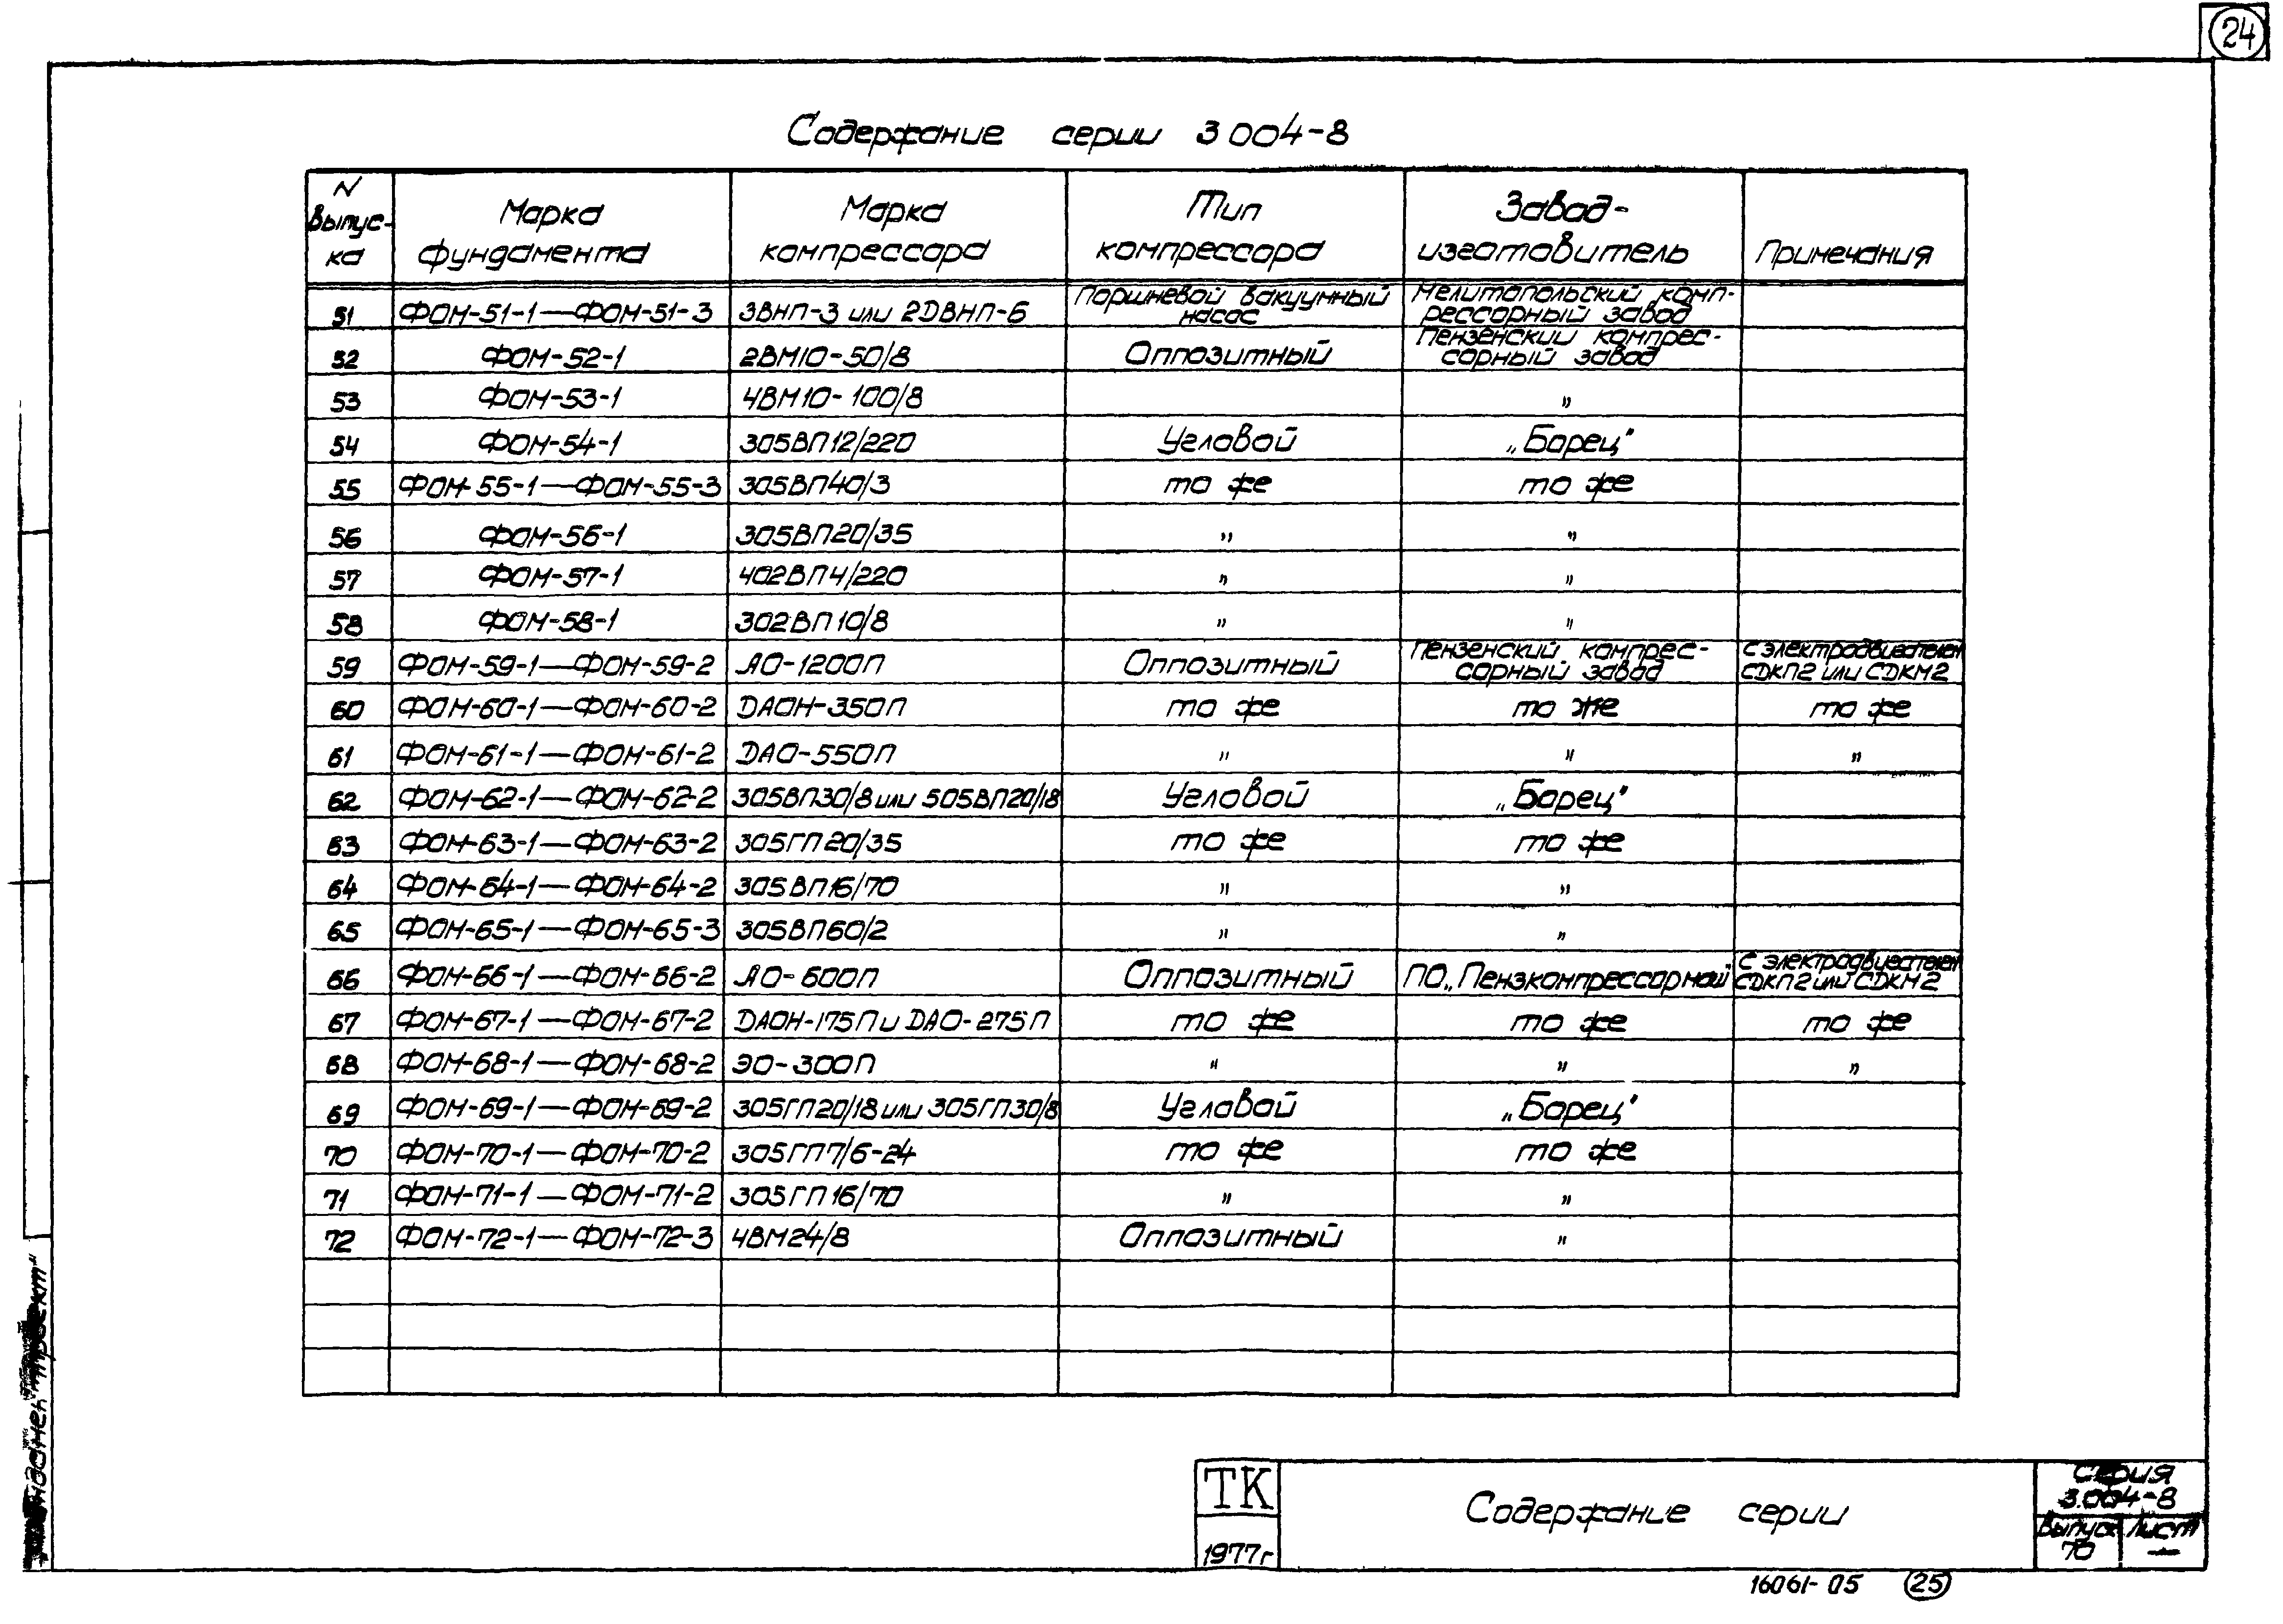 24
Содержание серии 3 004-8
N выпус-ка | Марка фундамента | Марка компрессора | Тип компрессора | Завод-изготовитель | Примечания
51 | ФОМ-51-1—ФОМ-51-3 | 3ВНП-3 или 2DВНП-6 | Поршневой вакуумный насос | Мелитопольский комп-рессорный завод
52 | ФОМ-52-1 | 2ВМ10-50/8 | Оппозитный | Пензенский компрес-сорный завод
53 | ФОМ-53-1 | 4ВМ10-100/8 | | "
54 | ФОМ-54-1 | 305ВП12/220 | Угловой | „Борец"
55 | ФОМ-55-1—ФОМ-55-3 | 305ВП40/3 | то же | то же
56 | ФОМ-56-1 | 305ВП20/35 | " | "
57 | ФОМ-57-1 | 402ВП4/220 | " | "
58 | ФОМ-58-1 | 302ВП10/8 | " | "
59 | ФОМ-59-1—ФОМ-59-2 | АО-1200П | Оппозитный | Пензенский компрес-сорный завод | С электродвигателем СДКП2 или СДКМ2
60 | ФОМ-60-1—ФОМ-60-2 | DАОН-350П | то же | то же | то же
61 | ФОМ-61-1—ФОМ-61-2 | DАО-550П | " | " | "
62 | ФОМ-62-1—ФОМ-62-2 | 305ВП30/8 или 505ВП20/18 | Угловой | „Борец"
63 | ФОМ-63-1—ФОМ-63-2 | 305ГП20/35 | то же | то же
64 | ФОМ-64-1—ФОМ-64-2 | 305ВП16/70 | " | "
65 | ФОМ-65-1—ФОМ-65-3 | 305ВП60/2 | " | "
66 | ФОМ-66-1—ФОМ-66-2 | АО-600П | Оппозитный | ПО„Пензкомпрессормаш | С электродвигателем СДКП2 или СДКМ2
67 | ФОМ-67-1—ФОМ-67-2 | DАОН-175П и DАО-275П | то же | то же | то же
68 | ФОМ-68-1—ФОМ-68-2 | ЭО-300П | " | " | "
69 | ФОМ-69-1—ФОМ-69-2 | 305ГП20/18 или 305ГП30/8 | Угловой | „Борец"
70 | ФОМ-70-1—ФОМ-70-2 | 305ГП7/6-24 | то же | то же
71 | ФОМ-71-1—ФОМ-71-2 | 305ГП16/70 | " | "
72 | ФОМ-72-1—ФОМ-72-3 | 4ВМ24/8 | Оппозитный | "
ТК
1977г
Содержание серии
Серия
3.004-8
Выпуск Лист
70 —
16061-05 25